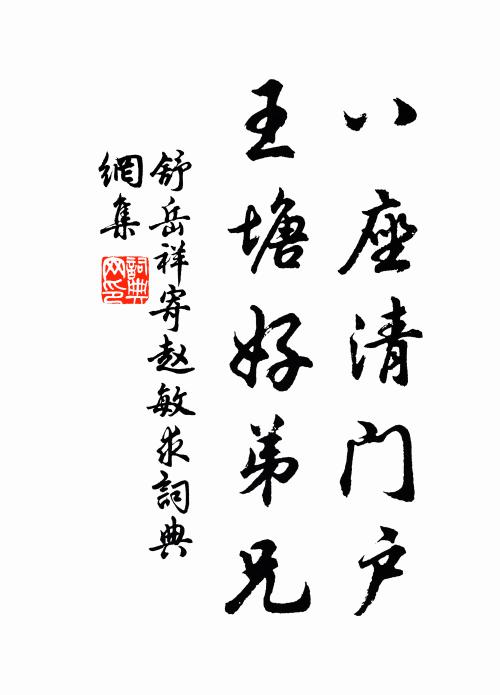 八座清门户
王塘好弟兄
舒岳祥寄赵敏求詞典
網集
詞典网印